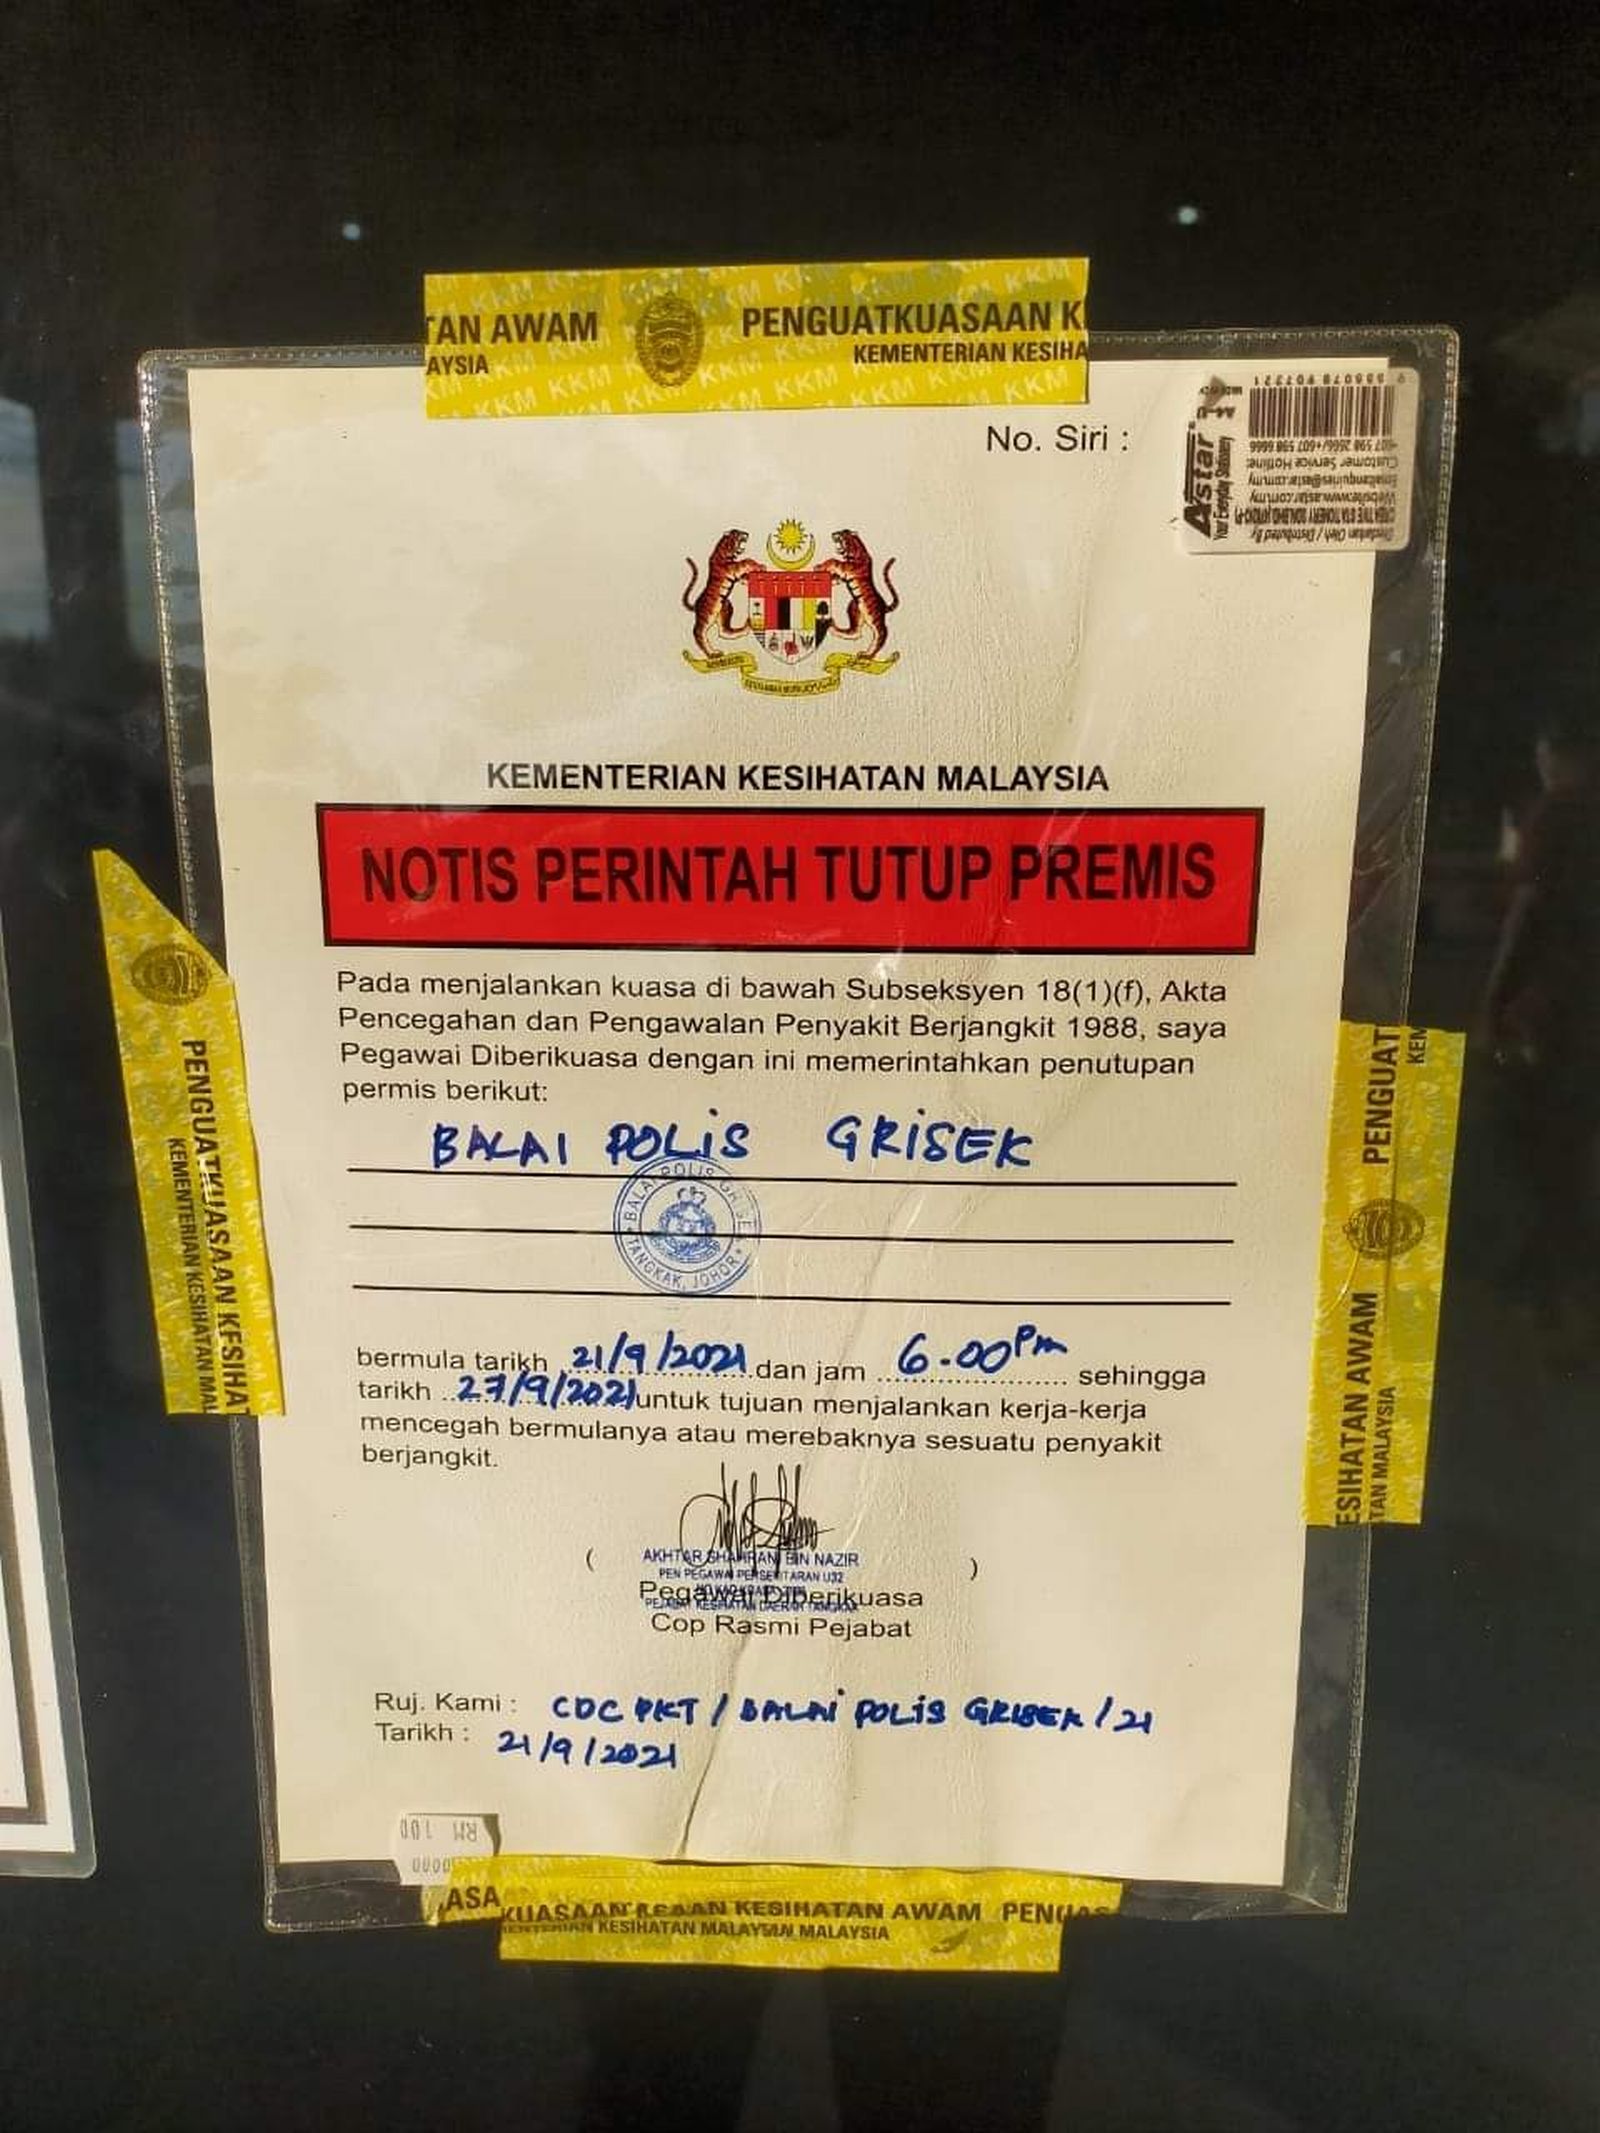 TAN AWAM PENGUATKUASAAN K
AYSIA KEMENTERIAN KESIHA
No. Siri :
Astar
Your Everyday Stationery
Diedarkan Oleh / Distributed By
Website:www.astar.com.my
Customer Service Hotline:
KEMENTERIAN KESIHATAN MALAYSIA
NOTIS PERINTAH TUTUP PREMIS
Pada menjalankan kuasa di bawah Subseksyen 18(1)(f), Akta
Pencegahan dan Pengawalan Penyakit Berjangkit 1988, saya
Pegawai Diberikuasa dengan ini memerintahkan penutupan
permis berikut:
BALAI POLIS GRISEK
BALAI POLIS GRISE
TANGKAK, JOHOR
bermula tarikh 21/9/2021 dan jam 6.00 Pm sehingga
tarikh 27/9/2021 untuk tujuan menjalankan kerja-kerja
mencegah bermulanya atau merebaknya sesuatu penyakit
berjangkit.
( AKHTAR SHAHRANI BIN NAZIR )
PEN PEGAWAI PERSEKITARAN U32
Pegawai Diberikuasa
PEJABAT KESIHATAN DAERAH TANGKAK
Cop Rasmi Pejabat
Ruj. Kami : CDC PKT / BALAI POLIS GRISEK / 21
Tarikh : 21/9/2021
RM 1.00
PENGUATKUASAAN KESIHAT
KEMENTERIAN KESIHATAN MAL
PENGUAT
KEM
ESIHATAN AWAM
TAN MALAYSIA
ASA
KUASAAN KESIHATAN AWAM PENGUAS
KESIHATAN MALAYSIA MALAYSIA